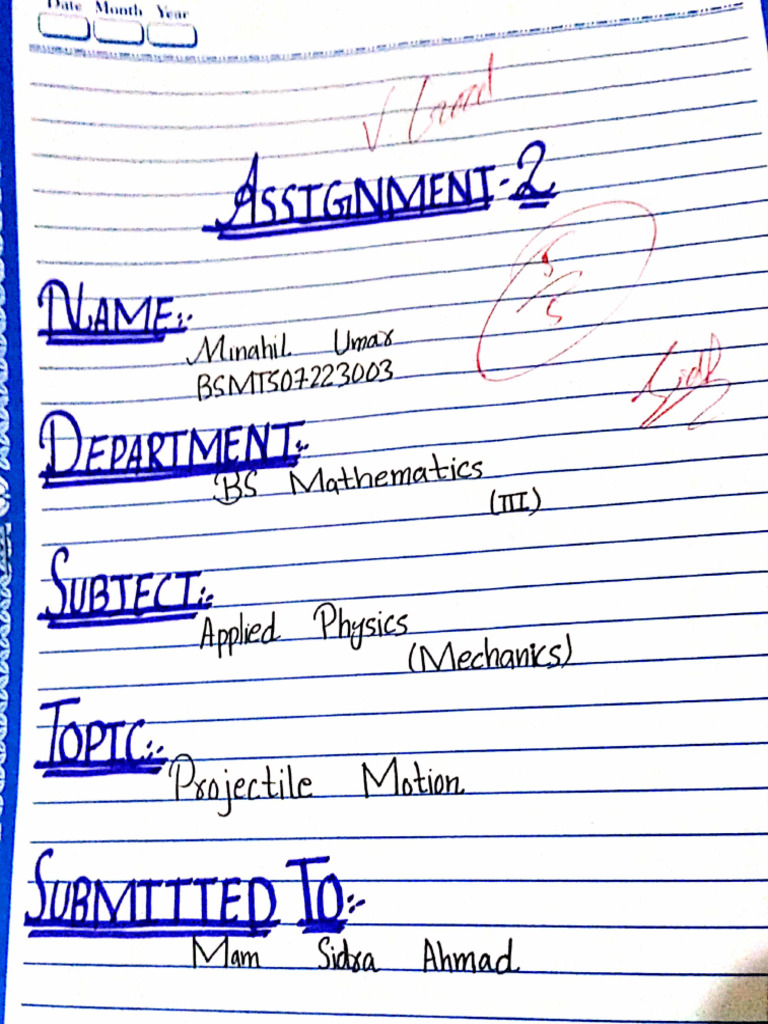 Date Month Year
✓ Good
ASSIGNMENT-2
5/5
NAME:-
Minahil Umar
BSMTS07223003
DEPARTMENT:-
BS Mathematics
(III)
SUBJECT:-
Applied Physics
(Mechanics)
TOPIC:-
Projectile Motion.
SUBMITTED TO:-
Mam Sidra Ahmad